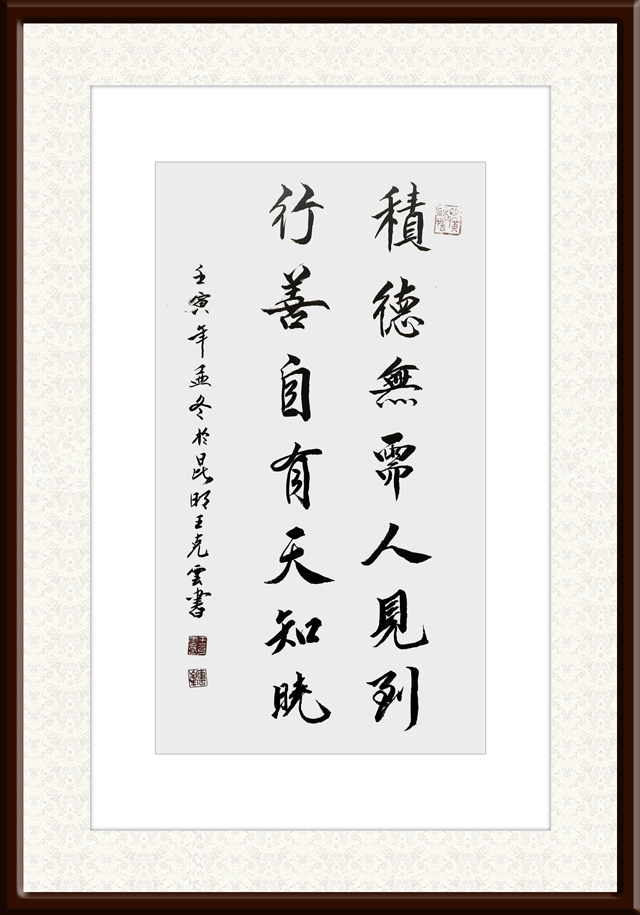 積德無需人見到
行善自有天知曉
壬寅年孟冬於昆明王克雲書